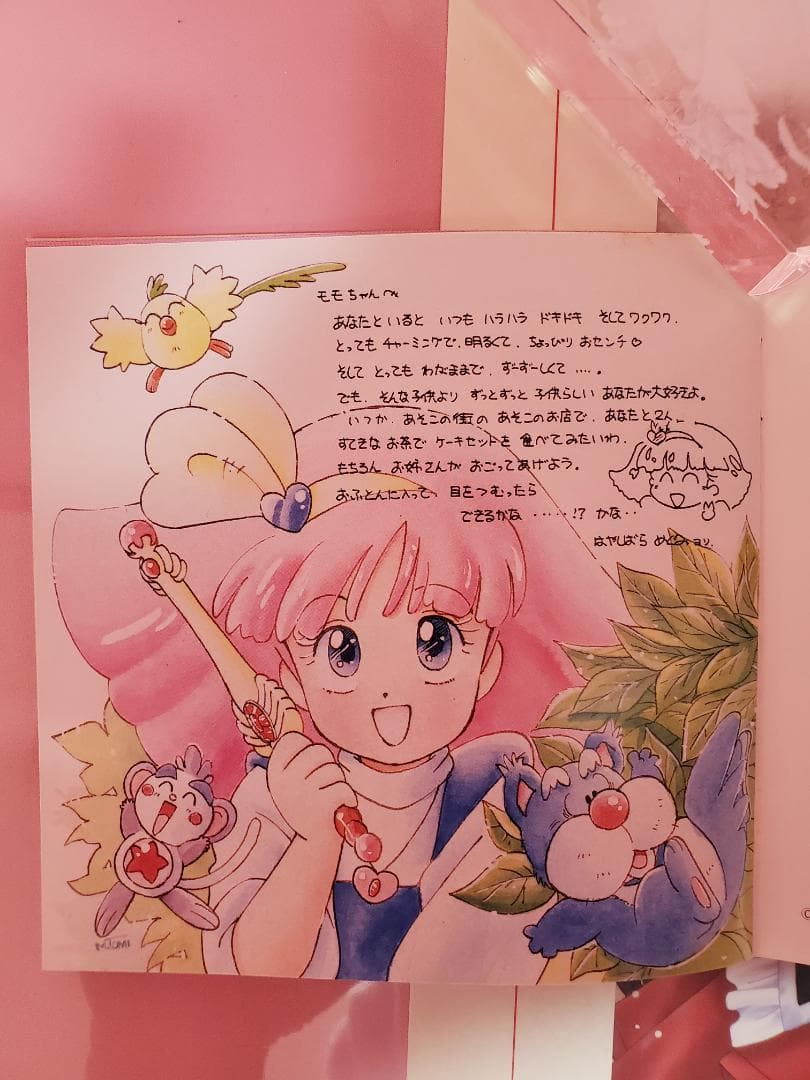 モモちゃんへ
あなたといると いつも ハラハラ ドキドキ そしてワクワク.
とっても チャーミングで、明るくて、ちょっぴり おセンチ♡
そして とっても わがままで、ずーずーしくて ‥‥。
でも、そんな子供より ずっとずっと 子供らしい あなたが大好きよ。
いつか、あそこの街の あそこのお店で、あなたと2人、
すてきな お茶で ケーキセットを 食べてみたいわ.
もちろん お姉さんが おごってあげよう。
おふとんに入って、目をつむったら
できるかな ‥‥‥!? かな‥
はやしばら めぐみ ヨリ.
MUGMI
©